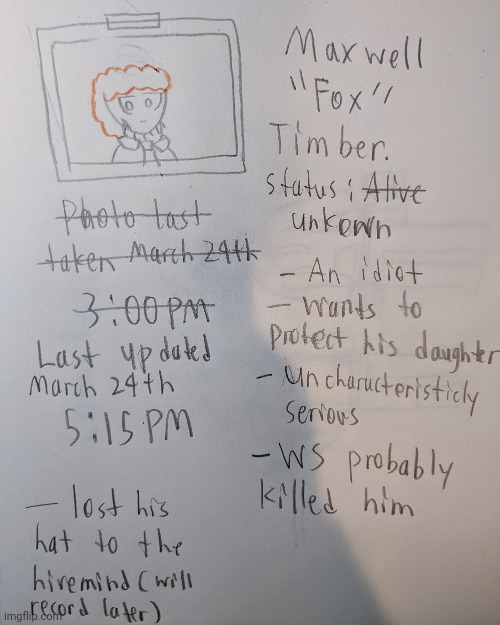 Maxwell
"Fox"
Timber.
Status: Alive
unkown
- An idiot
- Wants to
protect his daughter
- Uncharacteristicly
serious
- WS probably
killed him
Photo last
taken March 24th
3:00 PM
Last updated
March 24th
5:15 PM
- lost his
hat to the
hivemind (will
record later)
imgflip.com